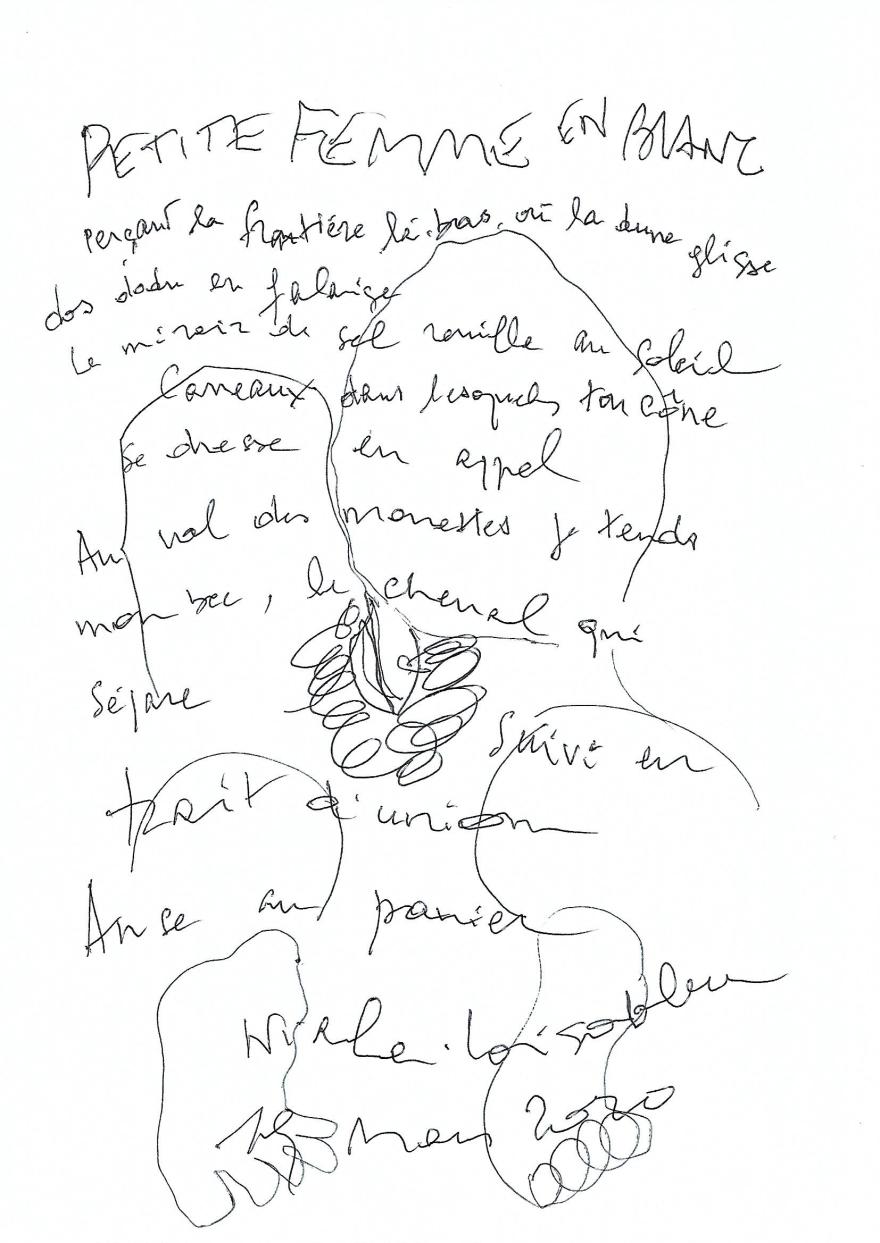 PETITE FEMME EN BLANC
perçant la frontière là-bas, où la dune glisse
dos dodu en falaise
Le miroir de sel rouille au soleil
Carreaux dans lesquels ton cône
se dresse en appel
Au vol des mouettes je tends
mon bec, le cheval qui
Sépare
Suivi en
trait d'union
Anse au panier
Niala-Loisobleu
19 Mars 2020